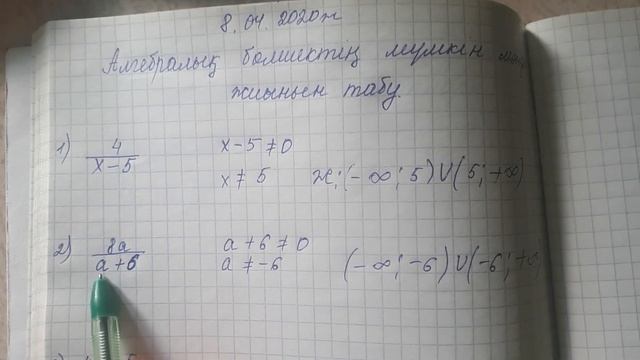 8.04.2020ж
Алгебралық бөлшектің мүмкін
жиынын табу.
1) 4/(x-5) x-5≠0
x≠5 ж: (-∞; 5)∪(5; +∞)
2) 8a/(a+6) a+6≠0
a≠-6 (-∞; -6)∪(-6; +∞)